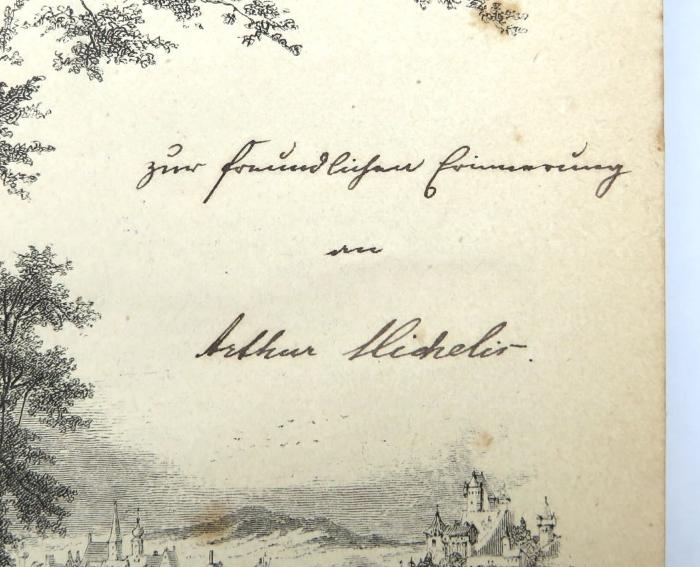 zur freundlichen Erinnerung
an
Arthur Michelis.